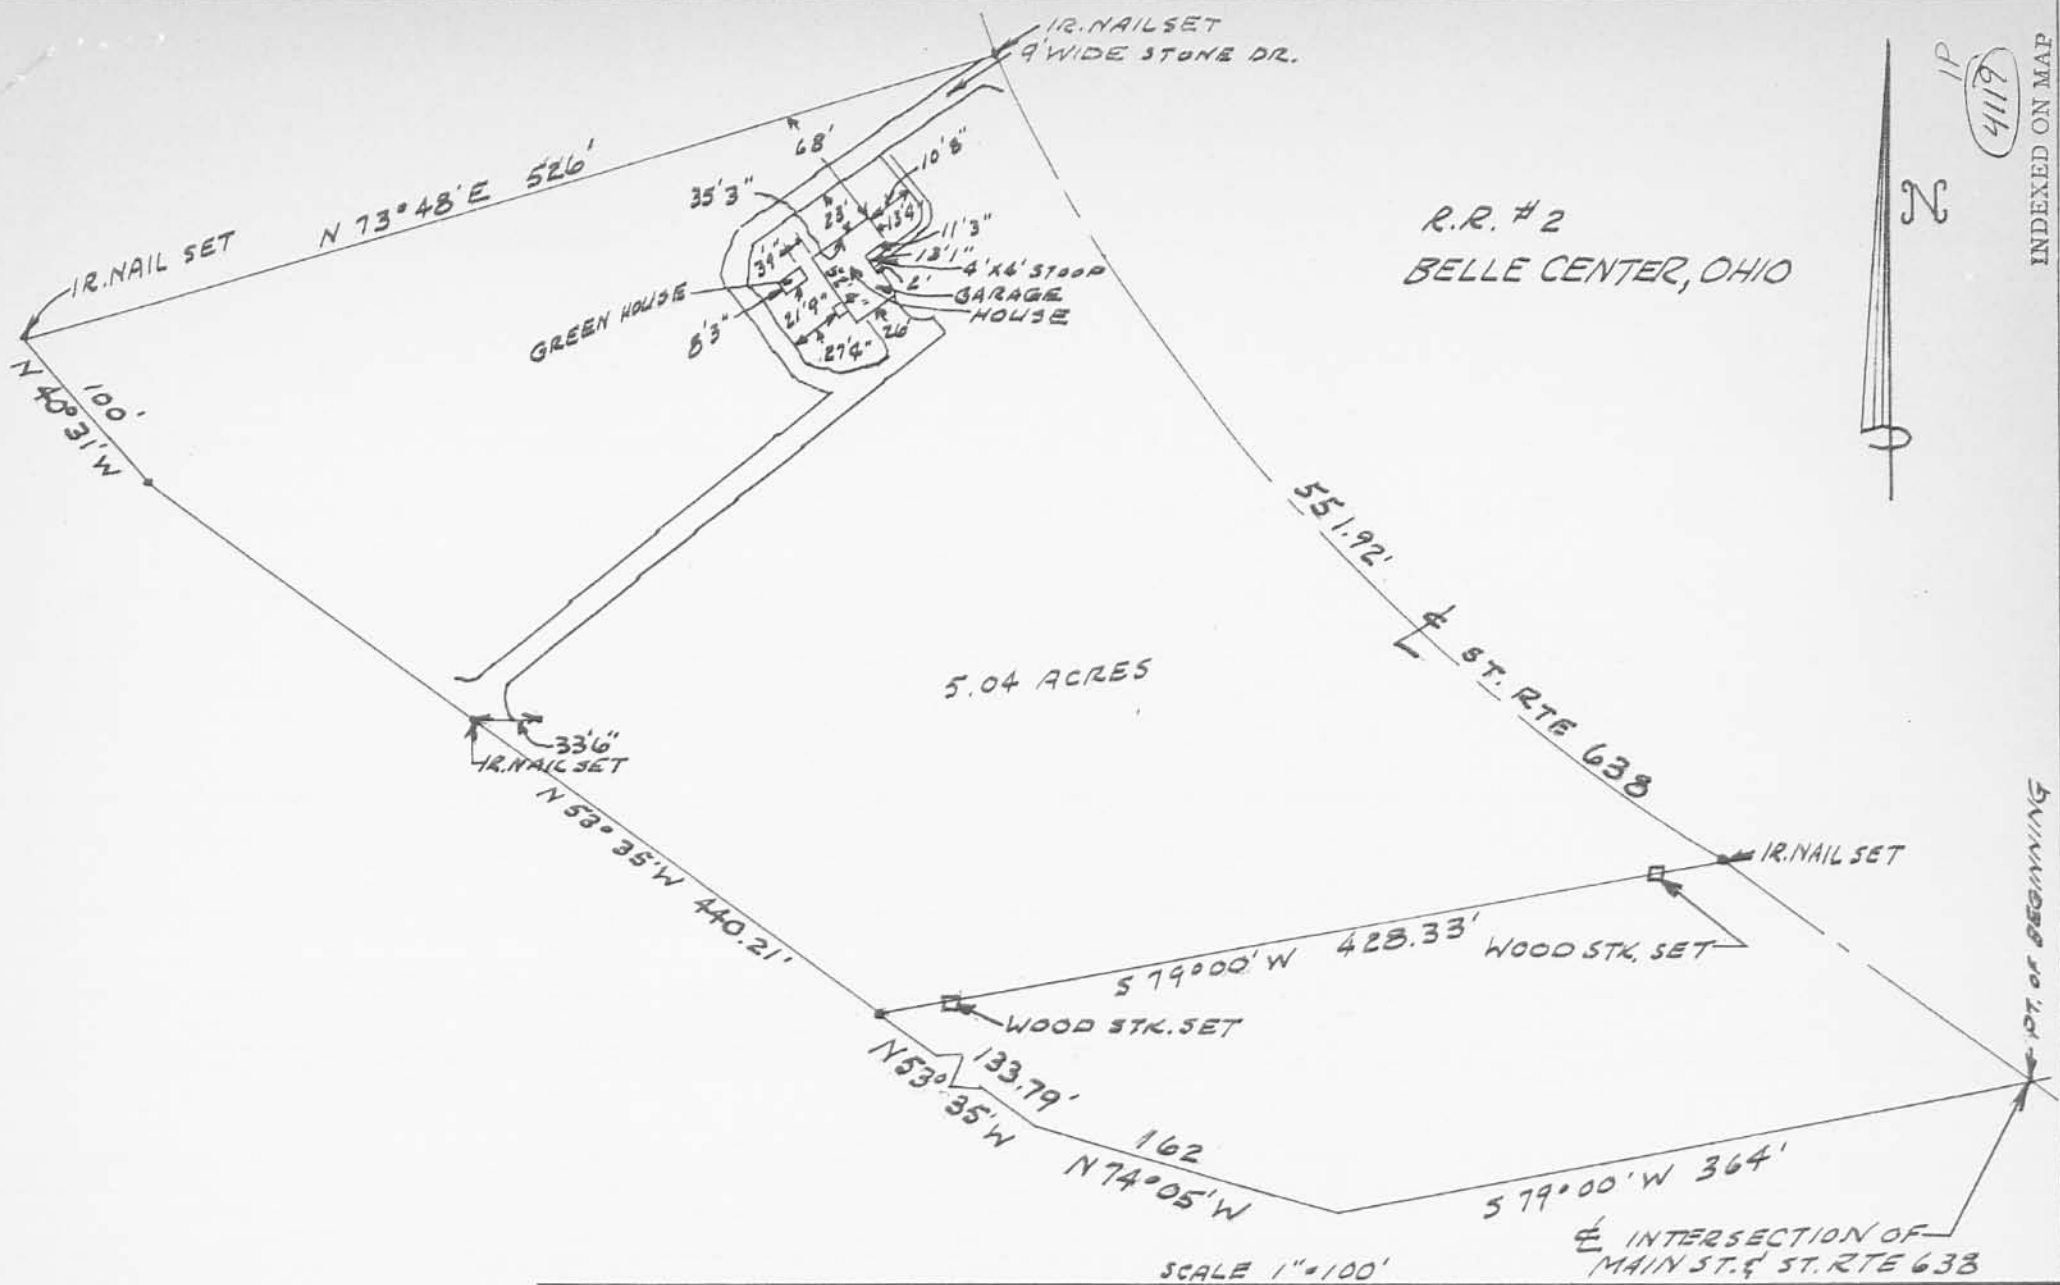 IR. NAIL SET
9' WIDE STONE DR.
INDEXED ON MAP
4119
1P
N
R.R. #2
BELLE CENTER, OHIO
IR. NAIL SET
N 73°48' E 526'
68'
10'8"
35'3"
23'
13'4
11'3"
13'1"
4' X 4' STOOP
2'
GARAGE
HOUSE
39'1"
GREEN HOUSE
8'3"
21'9"
27'4"
26'
100'
N 40°31' W
551.92'
℄ ST. RTE 638
5.04 ACRES
33'6"
IR. NAIL SET
N 53°35' W 440.21'
IR. NAIL SET
WOOD STK. SET
S 79°00' W 428.33'
WOOD STK. SET
133.79'
N 53°35' W
162
N 74°05' W
S 79°00' W 364'
PT. OF BEGINNING
℄ INTERSECTION OF
MAIN ST. & ST. RTE 638
SCALE 1"=100'